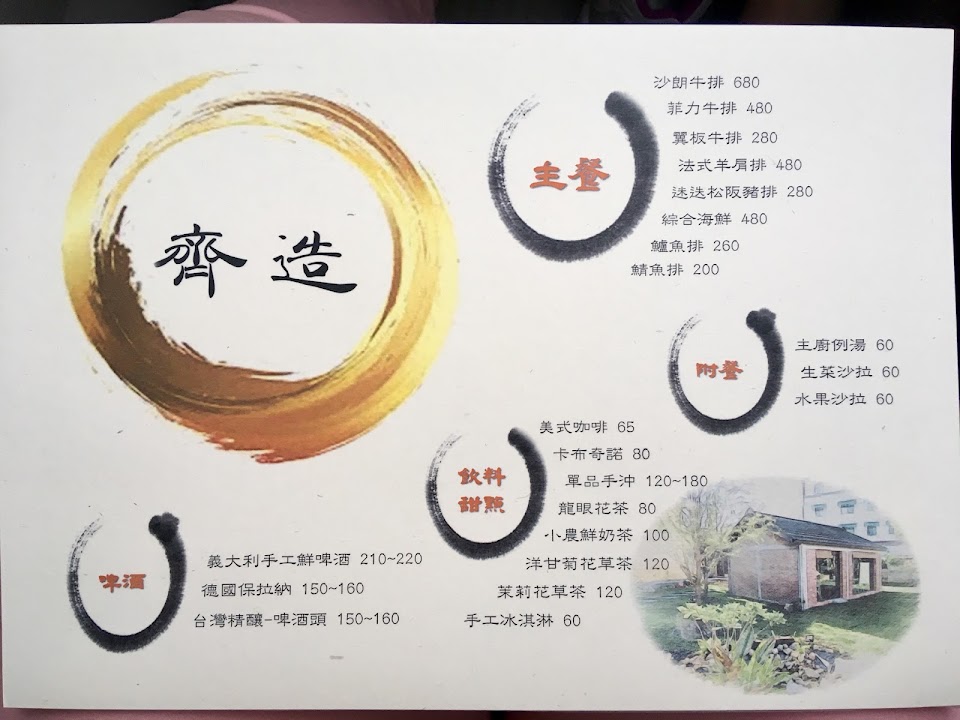 齊造
主餐
沙朗牛排 680
菲力牛排 480
翼板牛排 280
法式羊肩排 480
迷迭松阪豬排 280
綜合海鮮 480
鱸魚排 260
鯖魚排 200
附餐
主廚例湯 60
生菜沙拉 60
水果沙拉 60
飲料
甜點
美式咖啡 65
卡布奇諾 80
單品手沖 120~180
龍眼花茶 80
小農鮮奶茶 100
洋甘菊花草茶 120
茉莉花草茶 120
手工冰淇淋 60
啤酒
義大利手工鮮啤酒 210~220
德國保拉納 150~160
台灣精釀-啤酒頭 150~160